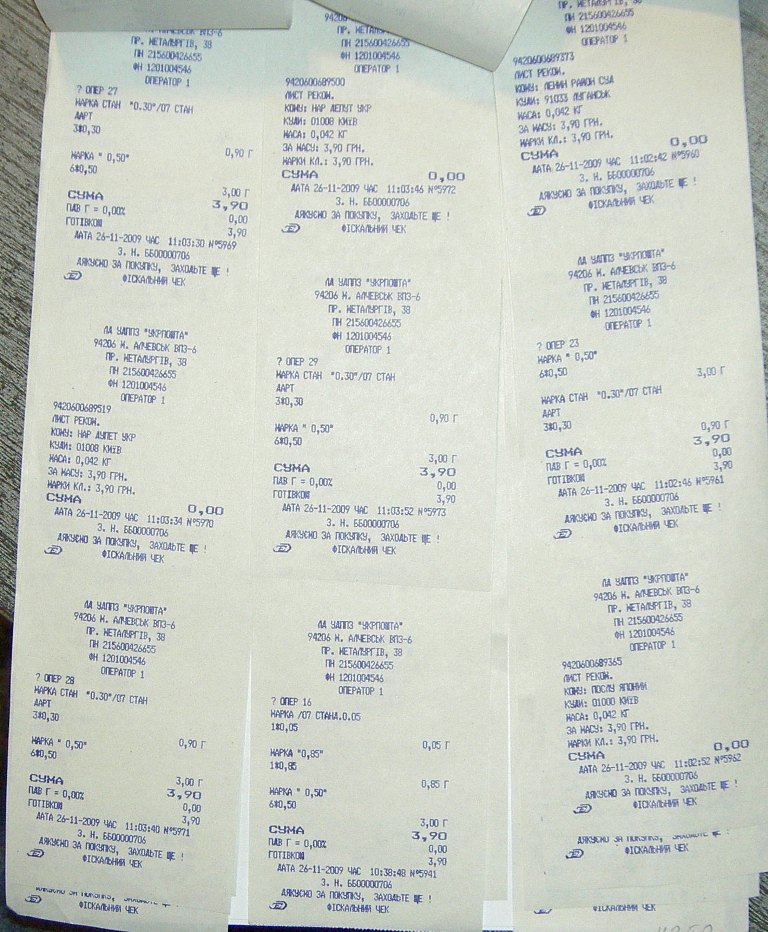 ПР. МЕТАЛУРГІВ, 38
ПН 215600426655
ФН 1201004546
ОПЕРАТОР 1
? ОПЕР 27
МАРКА СТАН "0.30"/07 СТАН
ДАРТ
3#0,30
0,90 Г
МАРКА " 0,50"
6#0,50
3,00 Г
СУМА 3,90
ПДВ Г = 0,00% 0,00
ГОТІВКОЮ 3,90
ДАТА 26-11-2009 ЧАС 11:03:30 №5969
З. Н. ББ00000706
ДЯКУЄМО ЗА ПОКУПКУ, ЗАХОДЬТЕ ЩЕ !
ФІСКАЛЬНИЙ ЧЕК
ЛА УДППЗ "УКРПОШТА"
94206 М. АЛЧЕВСЬК ВПЗ-6
ПР. МЕТАЛУРГІВ, 38
ПН 215600426655
ФН 1201004546
ОПЕРАТОР 1
9420600689519
ЛИСТ РЕКОМ.
КОМУ: НАР ДУПЕТ УКР
КУДИ: 01008 КИЇВ
МАСА: 0,042 КГ
ЗА МАСУ: 3,90 ГРН.
МАРКИ КЛ.: 3,90 ГРН.
СУМА 0,00
ДАТА 26-11-2009 ЧАС 11:03:34 №5970
З. Н. ББ00000706
ДЯКУЄМО ЗА ПОКУПКУ, ЗАХОДЬТЕ ЩЕ !
ФІСКАЛЬНИЙ ЧЕК
ЛА УДППЗ "УКРПОШТА"
94206 М. АЛЧЕВСЬК ВПЗ-6
ПР. МЕТАЛУРГІВ, 38
ПН 215600426655
ФН 1201004546
ОПЕРАТОР 1
? ОПЕР 28
МАРКА СТАН "0.30"/07 СТАН
ДАРТ
3#0,30
0,90 Г
МАРКА " 0,50"
6#0,50
3,00 Г
СУМА 3,90
ПДВ Г = 0,00% 0,00
ГОТІВКОЮ 3,90
ДАТА 26-11-2009 ЧАС 11:03:40 №5971
З. Н. ББ00000706
ДЯКУЄМО ЗА ПОКУПКУ, ЗАХОДЬТЕ ЩЕ !
ФІСКАЛЬНИЙ ЧЕК
ФІСКАЛЬНИЙ ЧЕК
94206
ПР. МЕТАЛУРГІВ, 38
ПН 215600426655
ФН 1201004546
ОПЕРАТОР 1
9420600689500
ЛИСТ РЕКОМ.
КОМУ: НАР ДЕПУТ УКР
КУДИ: 01008 КИЇВ
МАСА: 0,042 КГ
ЗА МАСУ: 3,90 ГРН.
МАРКИ КЛ.: 3,90 ГРН.
СУМА 0,00
ДАТА 26-11-2009 ЧАС 11:03:46 №5972
З. Н. ББ00000706
ДЯКУЄМО ЗА ПОКУПКУ, ЗАХОДЬТЕ ЩЕ !
ФІСКАЛЬНИЙ ЧЕК
ЛА УДППЗ "УКРПОШТА"
94206 М. АЛЧЕВСЬК ВПЗ-6
ПР. МЕТАЛУРГІВ, 38
ПН 215600426655
ФН 1201004546
ОПЕРАТОР 1
? ОПЕР 29
МАРКА СТАН "0.30"/07 СТАН
ДАРТ
3#0,30
0,90 Г
МАРКА " 0,50"
6#0,50
3,00 Г
СУМА 3,90
ПДВ Г = 0,00% 0,00
ГОТІВКОЮ 3,90
ДАТА 26-11-2009 ЧАС 11:03:52 №5973
З. Н. ББ00000706
ДЯКУЄМО ЗА ПОКУПКУ, ЗАХОДЬТЕ ЩЕ !
ФІСКАЛЬНИЙ ЧЕК
ЛА УДППЗ "УКРПОШТА"
94206 М. АЛЧЕВСЬК ВПЗ-6
ПР. МЕТАЛУРГІВ, 38
ПН 215600426655
ФН 1201004546
ОПЕРАТОР 1
? ОПЕР 16
МАРКА /07 СТАНД.0.05
1#0,05
0,05 Г
МАРКА "0,85"
1#0,85
0,85 Г
МАРКА " 0,50"
6#0,50
3,00 Г
СУМА 3,90
ПДВ Г = 0,00% 0,00
ГОТІВКОЮ 3,90
ДАТА 26-11-2009 ЧАС 10:38:48 №5941
З. Н. ББ00000706
ДЯКУЄМО ЗА ПОКУПКУ, ЗАХОДЬТЕ ЩЕ !
ФІСКАЛЬНИЙ ЧЕК
ПН 215600426655
ФН 1201004546
ОПЕРАТОР 1
9420600689373
ЛИСТ РЕКОМ.
КОМУ: ЛЕНИН РАЙОН СУД
КУДИ: 91033 ЛУГАНСЬК
МАСА: 0,042 КГ
ЗА МАСУ: 3,90 ГРН.
МАРКИ КЛ.: 3,90 ГРН.
СУМА 0,00
ДАТА 26-11-2009 ЧАС 11:02:42 №5960
З. Н. ББ00000706
ДЯКУЄМО ЗА ПОКУПКУ, ЗАХОДЬТЕ ЩЕ !
ФІСКАЛЬНИЙ ЧЕК
ЛА УДППЗ "УКРПОШТА"
94206 М. АЛЧЕВСЬК ВПЗ-6
ПР. МЕТАЛУРГІВ, 38
ПН 215600426655
ФН 1201004546
ОПЕРАТОР 1
? ОПЕР 23
МАРКА " 0,50"
6#0,50
3,00 Г
МАРКА СТАН "0.30"/07 СТАН
ДАРТ
3#0,30
0,90 Г
СУМА 3,90
ПДВ Г = 0,00% 0,00
ГОТІВКОЮ 3,90
ДАТА 26-11-2009 ЧАС 11:02:46 №5961
З. Н. ББ00000706
ДЯКУЄМО ЗА ПОКУПКУ, ЗАХОДЬТЕ ЩЕ !
ФІСКАЛЬНИЙ ЧЕК
ЛА УДППЗ "УКРПОШТА"
94206 М. АЛЧЕВСЬК ВПЗ-6
ПР. МЕТАЛУРГІВ, 38
ПН 215600426655
ФН 1201004546
ОПЕРАТОР 1
9420600689365
ЛИСТ РЕКОМ.
КОМУ: ПОСЛУ ЯПОНИИ
КУДИ: 01000 КИЇВ
МАСА: 0,042 КГ
ЗА МАСУ: 3,90 ГРН.
МАРКИ КЛ.: 3,90 ГРН.
СУМА 0,00
ДАТА 26-11-2009 ЧАС 11:02:52 №5962
З. Н. ББ00000706
ДЯКУЄМО ЗА ПОКУПКУ, ЗАХОДЬТЕ ЩЕ !
ФІСКАЛЬНИЙ ЧЕК
ДЯКУЄМО ЗА ПОКУПКУ, ЗАХОДЬТЕ ЩЕ !
ФІСКАЛЬНИЙ ЧЕК
ФІСКАЛЬНИЙ ЧЕК